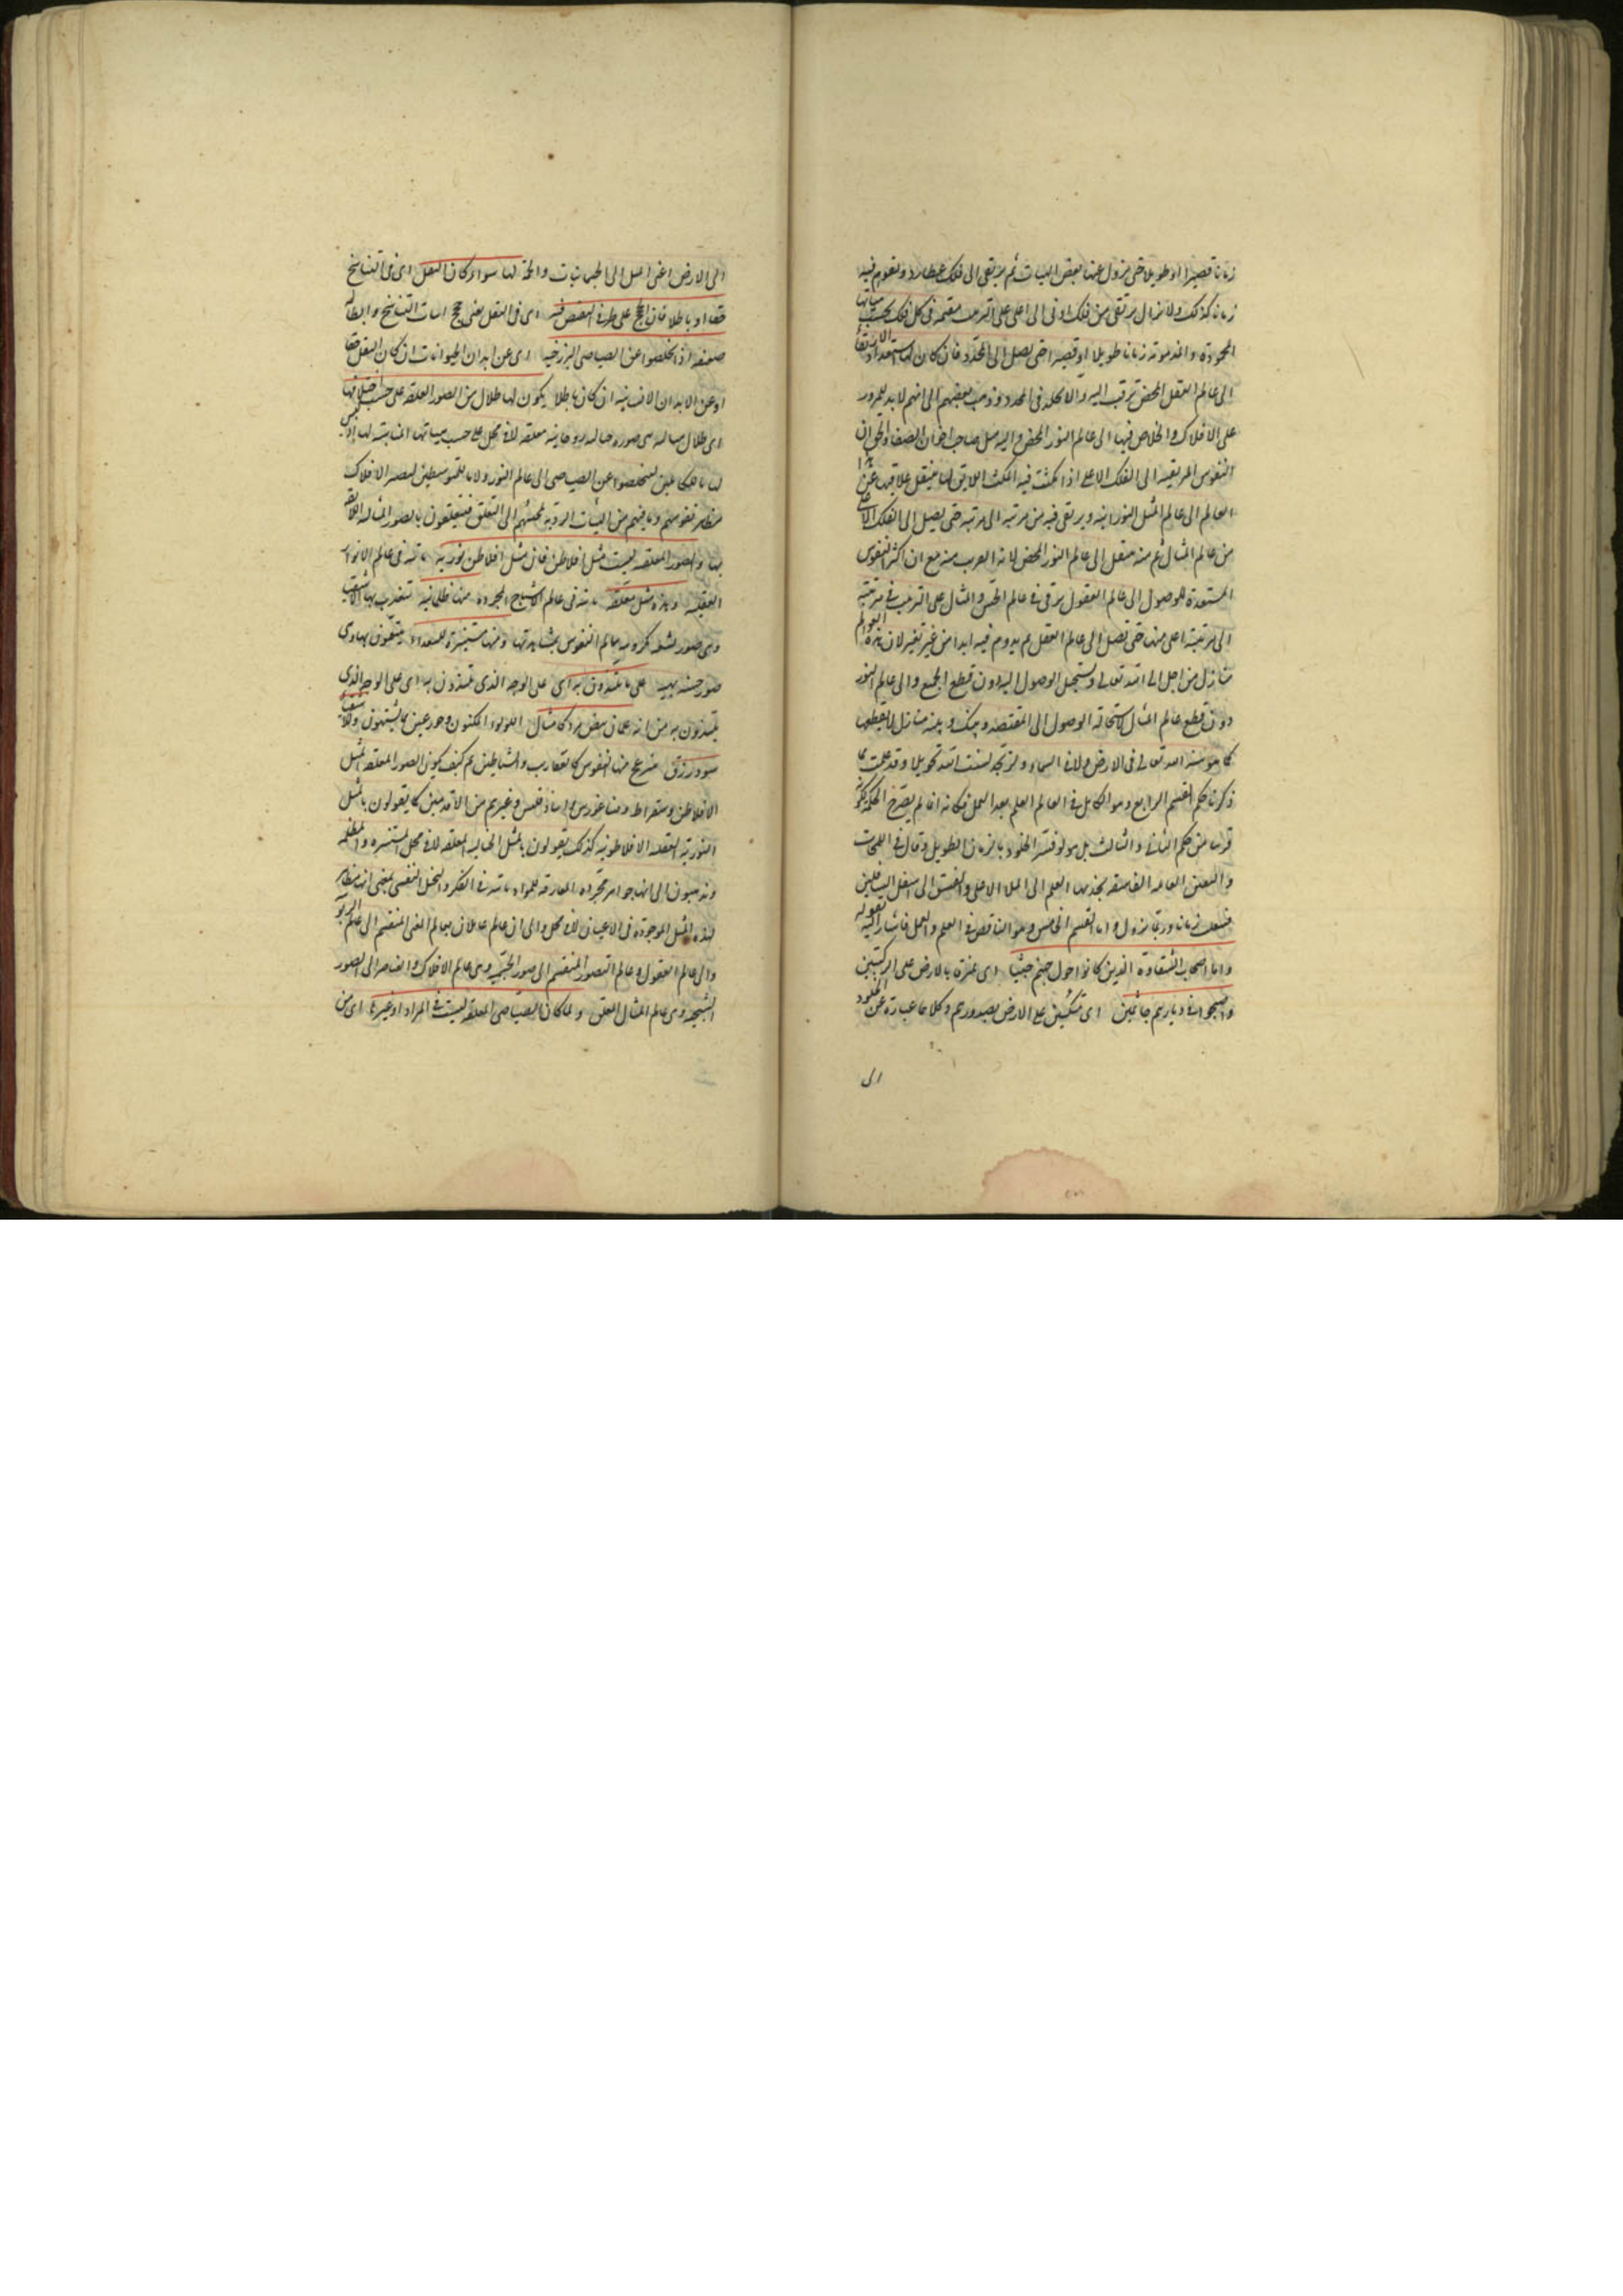 زمانا قصيرا او طويلا حتى يزول عنها بعض الهيات ثم يرتقى الى فلك عطارد ويقوم فيه
زمانا كذلك ولا يزال يرتقى من فلك ادنى الى اعلى على الترتيب مقيمة فى كل فلك بحسب هياتها
المحمودة والمذمومة زمانا طويلا او قصيرا حتى يصل الى المحدد فان كان لها استعداد الارتقا
الى عالم العقل المحض ترقت اليه والا تخلد فى المحدد وذهب بعضهم الى انهم لا بد المرور
على الافلاك والخلاص فيها الى عالم النور المحض واليه ميل صاحب اخوان الصفا والحق ان
النفوس المرتقية الى الفلك الاعلى اذا مكثت فيه المكث اللايق لها ينتقل علاقتها عن هذا
العالم الى عالم المثل النورانية ويرتقى فيه من مرتبه الى مرتبه حتى يصل الى الفلك الاعلى
من عالم المثال ثم منه ينتقل الى عالم النور المحض لانه القرب منه مع ان اكثر النفوس
المستعدة للوصول الى عالم العقول يرقى فى عالم الحس والمثال على الترتيب فى مرتبة
الى مرتبة اعلى منها حتى تصل الى عالم العقل ثم يدوم فيه ابدا من غير تغير لان هذه العوالم
منازل من اجل الى الله تعالى ويستحيل الوصول اليه دون قطع الجميع والى عالم النور
دون قطع عالم المثال لاستحالة الوصول الى المقتصد وبينك وبينه منازل لا يقطعها
كما هو سنة الله تعالى فى الارض ولا فى السماء ولن تجد لسنت الله تحويلا وقد علمت مما
ذكرناه حكم القسم الرابع وهو الكامل فى العالم العلم بعد العمل فكانه انما لم يصرح الحكم لكونه
قريبا من حكم الثانى والثالث بل هو لو فسر الخلود بالزمان الطويل وقال فى اللمحات
والنفس العالمه الفاسقه يجذبها العلم الى الملا الاعلى والفسق الى اسفل السافلين
زمانا وربما يزول واما القسم الخامس وهو الناقص فى العلم والعمل فاشار اليه بقوله
واما اصحاب الشقاوة الذين كانوا حول جهنم جثيا اى بمنزة بالارض على الركبتين
واصبحوا فى ديارهم جاثمين اى متكئين على الارض بصدورهم وكلاهما عبارة عن الخلود
الى
الى الارض اعنى الميل الى الجسمانيات والمحبة لها سواء كان النقل اى فى التناسخ
حقا او باطلا فان الحجج على طرفى النقيض فيه اى فى النقل يعنى حجج اثبات التناسخ وابطاله
ضعيفه اذا تخلصوا عن الصياصى البرزخيه اى عن ابدان الحيوانات ان كان النقل حقا
او عن الابدان الانسانيه ان كان باطلا يكون لها ظلال من الصور المعلقه على حسب اخلاقها
اى ظلال مثاليه هى صور خياليه روحانيه معلقه لا فى محل على حسب هياتها المناسبة لها اذ ليس
لها ما للكاملين ليتخلصوا عن الصياصى الى عالم النور ولا ما للمتوسطين ليصير الافلاك
مظاهر نفوسهم وما فيهم من الهيئات الردية تحبسهم الى التعلق فيتعلقون بالصور المثاليه اللائقه
بها والصور المعلقه ليست مثل افلاطن فان مثل افلاطن نوريه ثابته فى عالم الانوار
العقليه وهذه مثل معلقه ثابته فى عالم الاشباح المجرده منها ظلمانيه يتعذب بها الاشقيا
وهى صور مكروهه يتالم النفوس بمشاهدتها ومنها مستنيرة للسعداء يتنعمون بها وهى
صور حسنه بهيه على ما يلتذون به اى على الوجه الذى يلتذون به اى على الوجه الذى
يلتذون به من انه غلمان بيض مرد كامثال اللولو المكنون وحور عين مما يشتهون وللاشقيا
سود زرق ينزعج منها النفوس كالعقارب والشياطين ثم كيف يكون الصور المعلقه المثل
الافلاطن وسقراط وفيثاغورس وانباذقلس وغيرهم من الاقدمين كما يقولون بالمثل
النورية العقليه الافلاطونيه كذلك يقولون بالمثل الخياليه المعلقه لا فى محل المستنيره والمظلمه
ويذهبون الى انها جواهر مجرده مفارقه للمواد ثابته فى الفكر والتخيل النفسى بمعنى انها مظاهر
لهذه المثل الموجودة فى الاعيان لا فى محل والى ان العالم عالمان عالم المعنى المنقسم الى عالم الربوبيه
والى عالم العقول وعالم الصور المنقسم الى صور الجسميه وهى عالم الافلاك والعناصر والى الصور
الشبحيه وهى عالم المثال المعلق ولما كان الصياصى المعلقه ليست فى المرايا وغيرها اى من